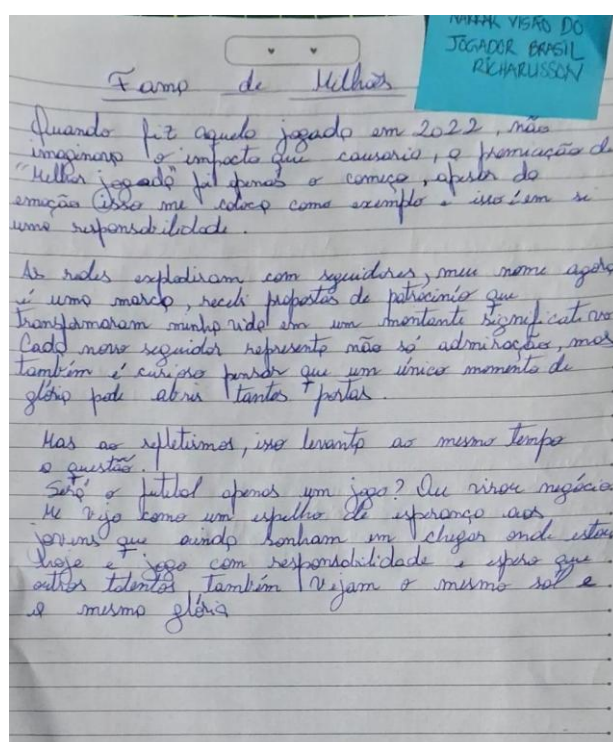 NARRAR VISÃO DO
JOGADOR BRASIL
RICHARLISSON
Fama de Milhões
Quando fiz aquela jogada em 2022, não
imaginava o impacto que causaria, a premiação de
"Melhor jogada" foi apenas o começo, apesar da
emoção isso me coloca como exemplo e isso é em si
uma responsabilidade.
As redes explodiram com seguidores, meu nome agora
é uma marca, recebi propostas de patrocínio que
transformaram minha vida em um montante significativo
Cada novo seguidor representa não só admiração, mas
também é curioso pensar que um único momento de
glória pode abrir tantas portas.
Mas ao refletirmos, isso levanta ao mesmo tempo
a questão.
Será o futebol apenas um jogo? Ou virou negócio
Me vejo como um espelho de esperança aos
jovens que ainda sonham em chegar onde estou
hoje e jogo com responsabilidade e espero que
outros talentos também vejam o mesmo sol e
a mesma glória